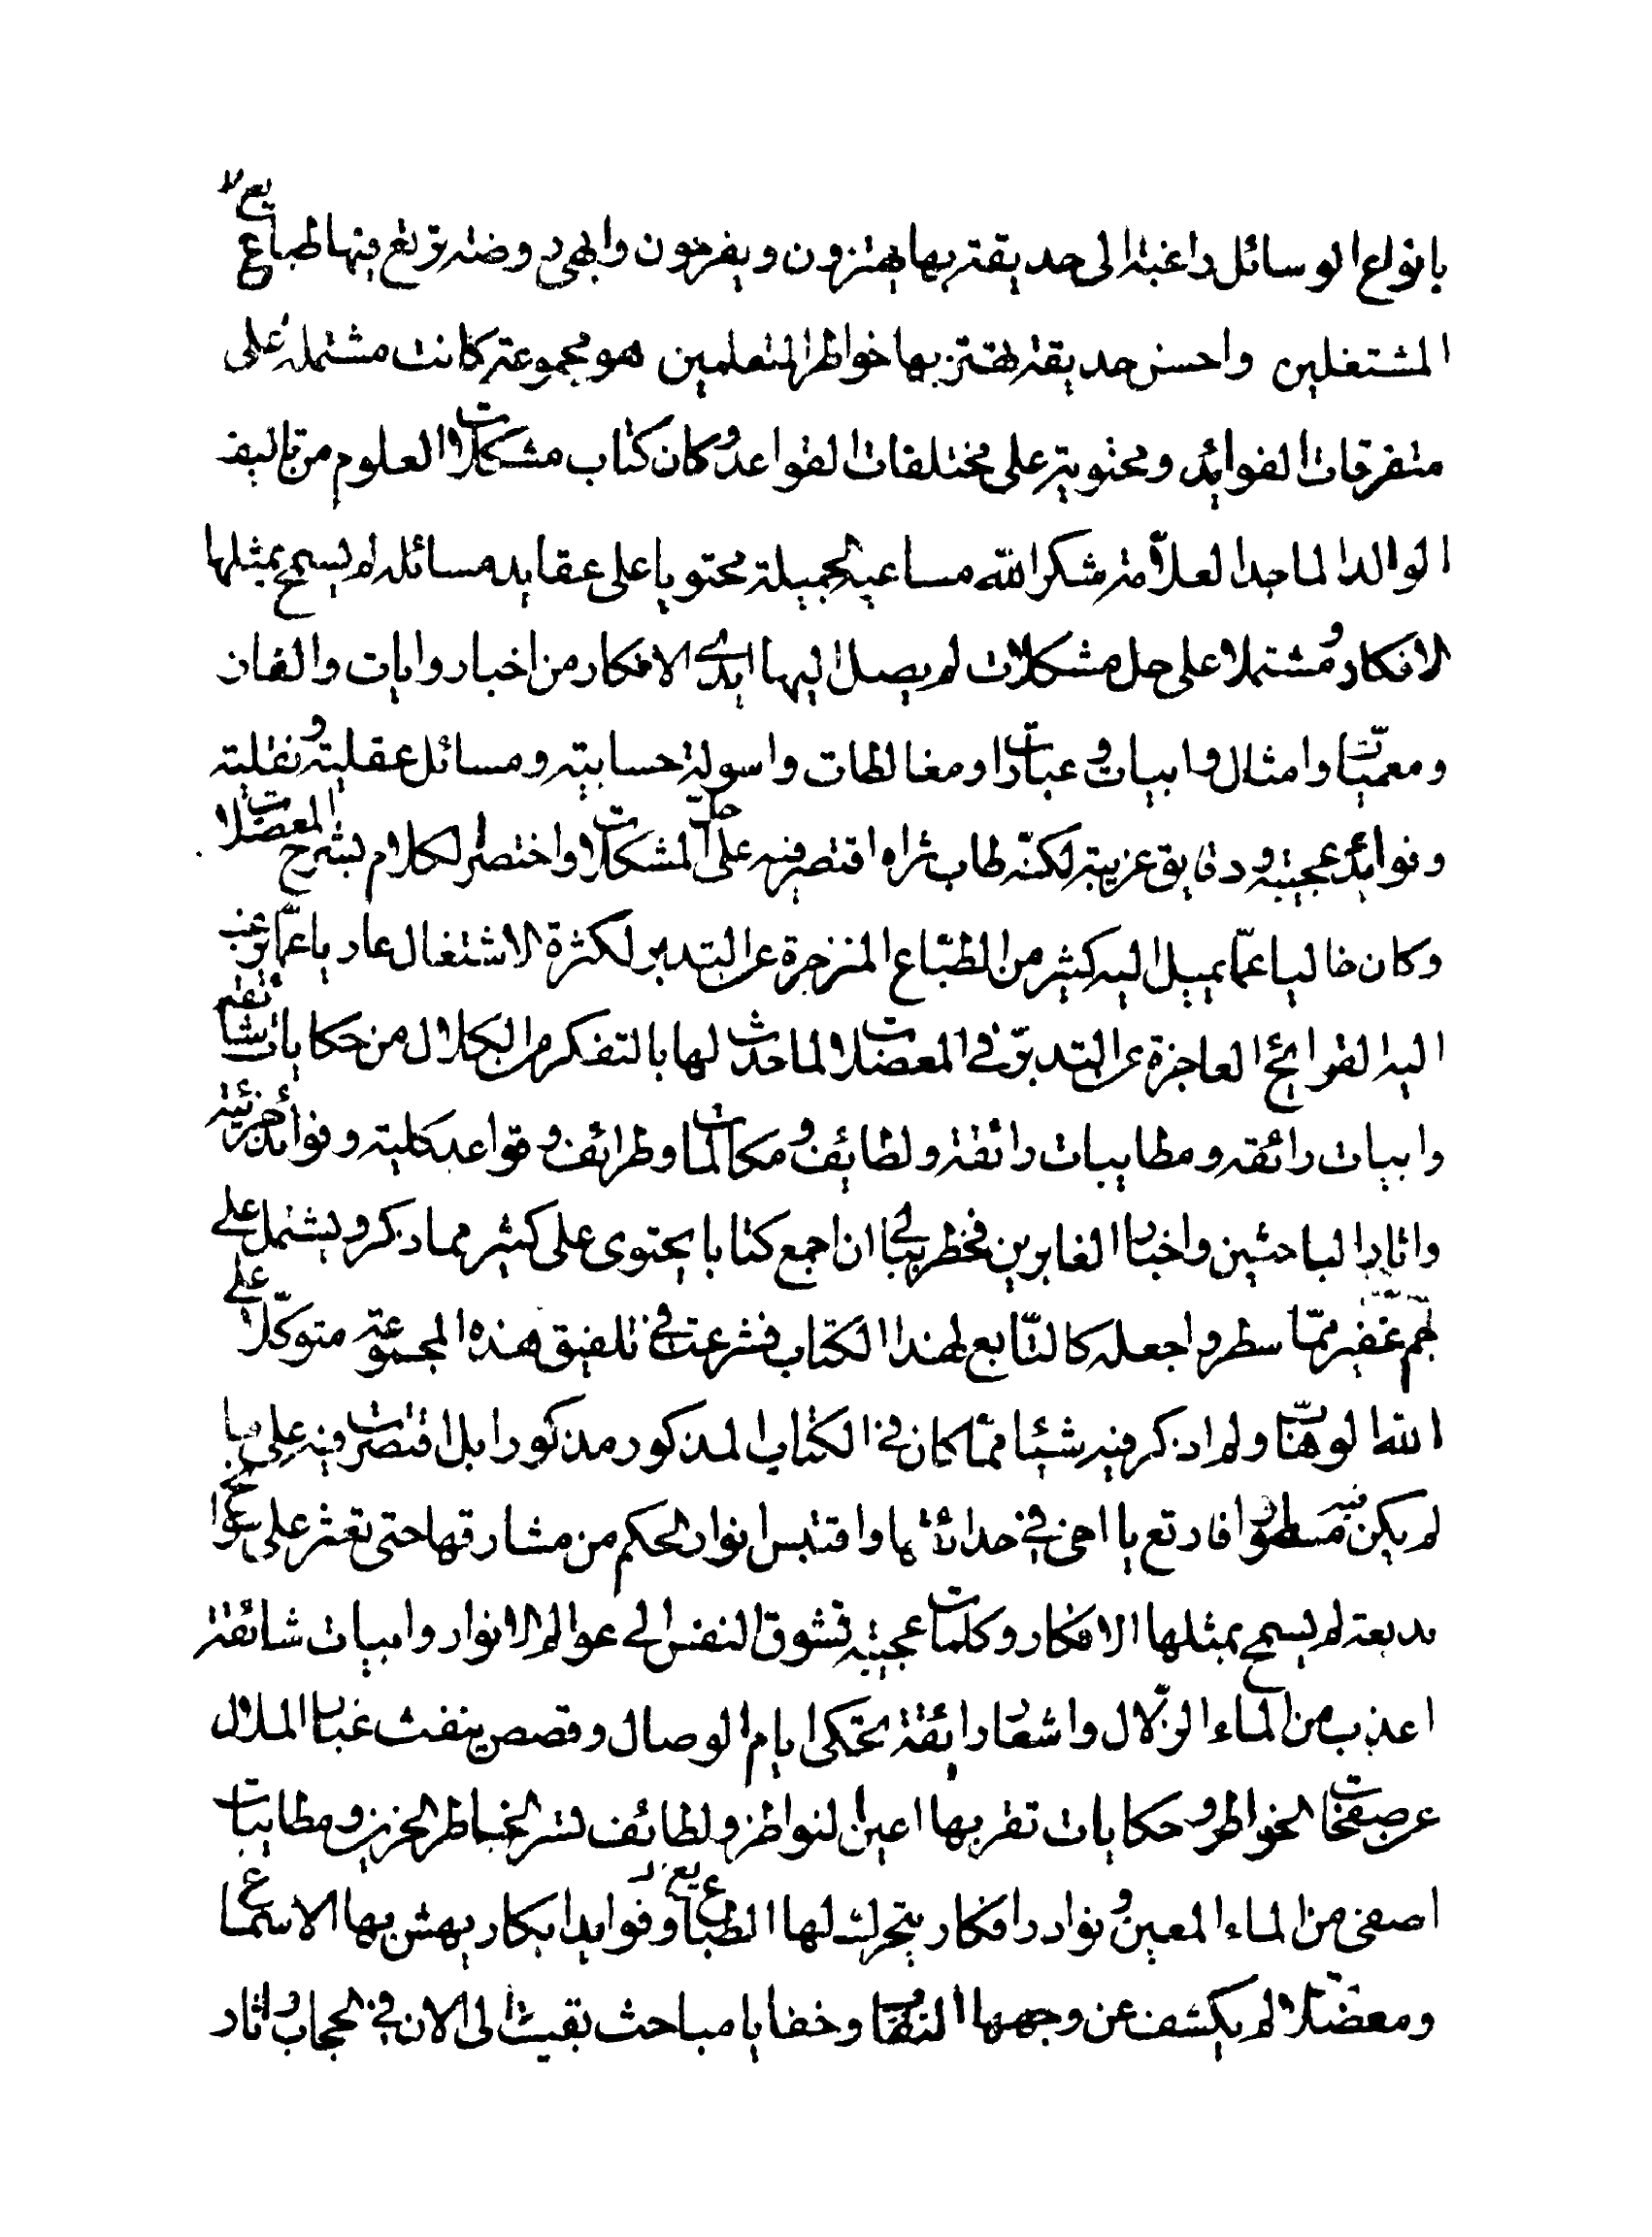 بانواع الوسائل راغبة الى حديقة بها يهتزون ويفرحون وابهى روضة ترتع فيها طباع
المشتغلين واحسن حديقة تهتز بها خواطر المتعلمين هو مجموعة كانت مشتملة على
متفرقات الفوائد ومحتوية على مختلفات القواعد وكان كتاب مشكلات العلوم من تاليف
الوالد الماجد العلامة شكر الله مساعيه الجميلة محتويا على عقايد مسائل لم يسمح بمثلها
الافكار ومشتملا على حل مشكلات لم يصل اليها ايدي الافكار من اخبار وايات والغاز
ومعمّيات وامثال وابيات وعبارات ومغالطات واسولة حسابية ومسائل عقلية ونقلية
وفوائد عجيبة ودقايق غريبة لكنّه طاب ثراه اقتصر فيه على حلّ المشكلات واختصر الكلام بشرح المعضلات
وكان خاليا عمّا يميل اليه كثير من الطبّاع المنزجرة عن التدبر لكثرة الاشتغال عاريا عمّا ترغب
اليه القرايح العاجزة عن التدبّر في المعضلات لما حدث لها بالتفكر من الكلال من حكايات شائقة
وابيات رائقة ومطايبات رائقة ولطايف ومكالمات وظرائف وقواعد كلية وفوائد جزئية
واثار الباحثين واخبار الغابرين فخطر ببالي ان اجمع كتابا يحتوى على كثير مما ذكر ويشتمل على
جمّ غفير ممّا سطر واجعله كالتّابع لهذا الكتاب فشرعت في تلفيق هذه المجموعة متوكّلا على
الله الوهّاب ولم اذكر فيه شيئا ممّا كان في الكتاب المذكور مذكورا بل اقتصرت فيه على ما
لم يكن فيه مسطورا فارتع يا اخى في حدائقها واقتبس انوار الحكم من مشارقها حتى تعثر على سوانح
بديعة لم يسمح بمثلها الافكار وكلمات عجيبة تشوق النفس الى عوالم الانوار وابيات شائقة
اعذب من الماء الزلّال واشعار رائقة تحكى ايام الوصال وقصص ينفث غبار الملال
عن صفحات الخواطر وحكايات تقر بها اعين النواظر ولطائف تسر الخاطر الحزين ومطايبات
اصفى من الماء المعين ونوادر افكار يتحرك لها الطباع وفوايد ابكار يهش بها الاسماع
ومعضلات لم يكشف عن وجهها النقاب وخفايا مباحث بقيت الى الان في الحجاب واثار